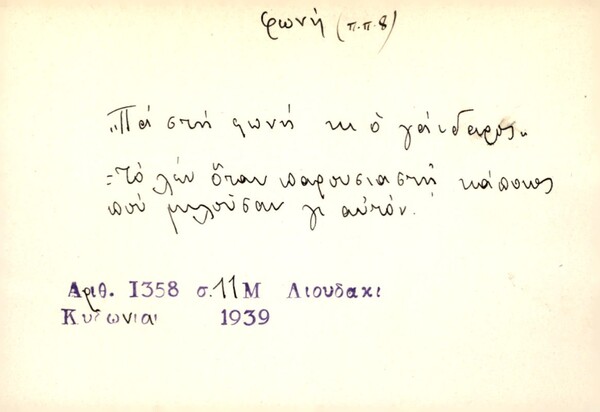 φωνή (π.π. 8)
„Πά στή φωνή κι ὁ γάϊδαρος„
=Τό λέν ὅταν παρουσιαστῆ κάποιος
πού μιλοῦσαν γι αὐτόν.
Αριθ. 1358 σ. 11 Μ Λιουδακι
Κυδωνιαι 1939